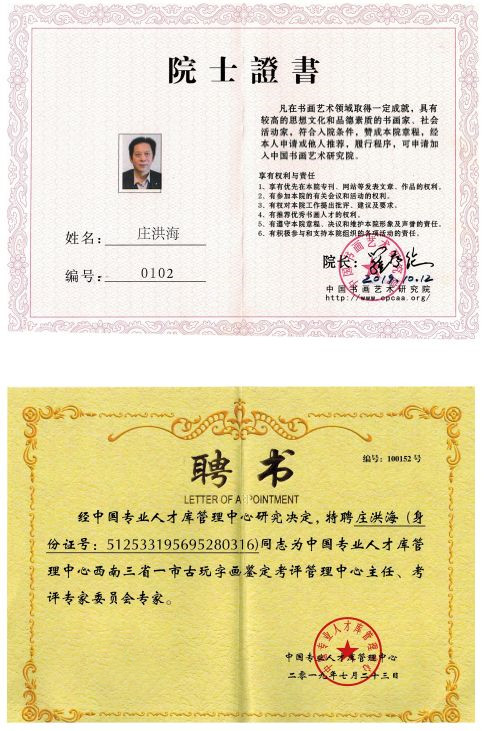 院士證書
凡在书画艺术领域取得一定成就，具有
较高的思想文化和品德素质的书画家、社会
活动家，符合入院条件，赞成本院章程，经
本人申请或他人推荐，履行程序，可申请加
入中国书画艺术研究院。
享有权利与责任
1、享有优先在本院专刊、网站等发表文章、作品的权利。
2、有参加本院的有关会议和活动的权利。
3、有权对本院工作提出批评、建议及要求。
4、有推荐优秀书画人才的权利。
5、有遵守本院章程、决议和维护本院形象及声誉的责任。
6、有积极参与和支持本院组织的各项活动的责任。
姓名：庄洪海
编号：0102
院长：
2019.10.12
中国书画艺术研究院
http://www.cpcaa.org/
聘书
编号：100152号
LETTER OF APPOINTMENT
经中国专业人才库管理中心研究决定，特聘庄洪海（身
份证号：512533195695280316)同志为中国专业人才库管
理中心西南三省一市古玩字画鉴定考评管理中心主任、考
评专家委员会专家。
中国专业人才库管理中心
中国专业人才库管理中心
二〇一九年七月二十三日